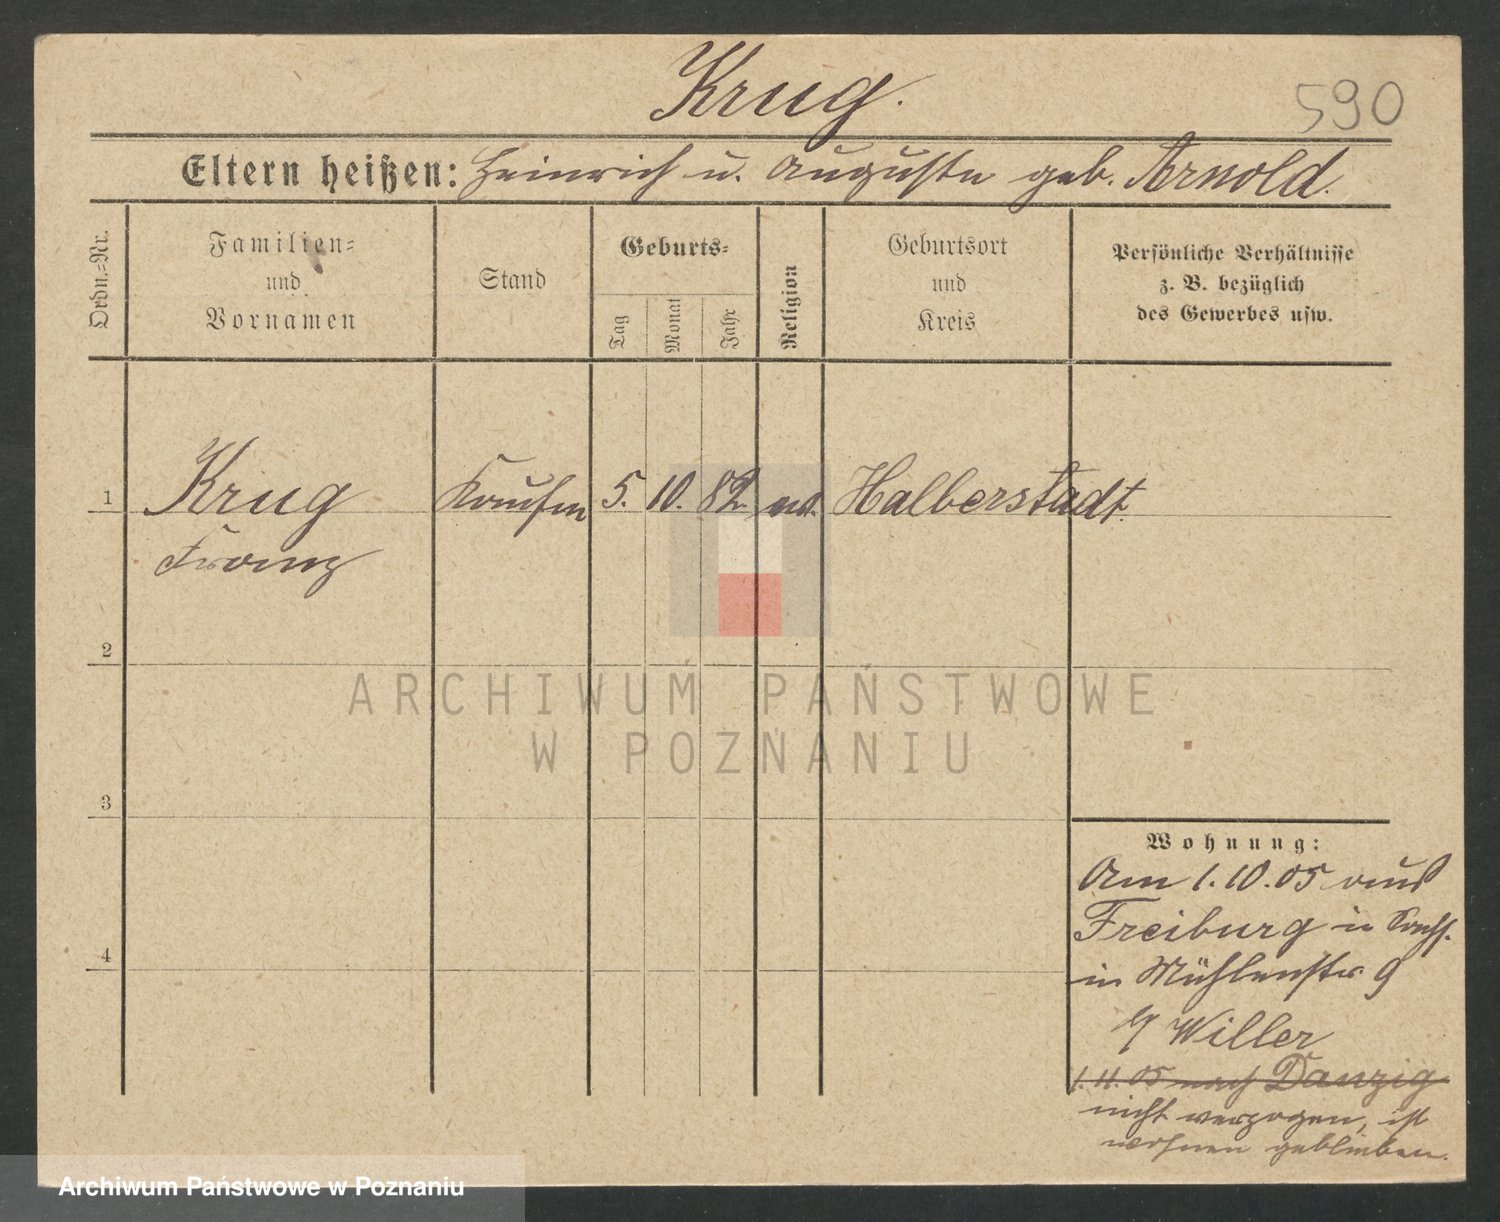 Krug.
590
Eltern heißen: Heinrich u. Auguste geb. Arnold.
Ordn.=Nr.
Familien=
und
Vornamen
Stand
Geburts=
Tag
Monat
Jahr
Religion
Geburtsort
und
Kreis
Persönliche Verhältnisse
z. B. bezüglich
des Gewerbes usw.
1
Krug Kaufm 5. 10. 82. ev. Halberstadt.
Franz
2
ARCHIWUM PAŃSTWOWE
W POZNANIU
3
Wohnung:
Am 1.10.05 aus
Freiburg in Sachs.
4
in Mühlenstr 9
b/ Willer
1.11.05 nach Danzig
nicht verzogen, ist
wohnen geblieben.
Archiwum Państwowe w Poznaniu